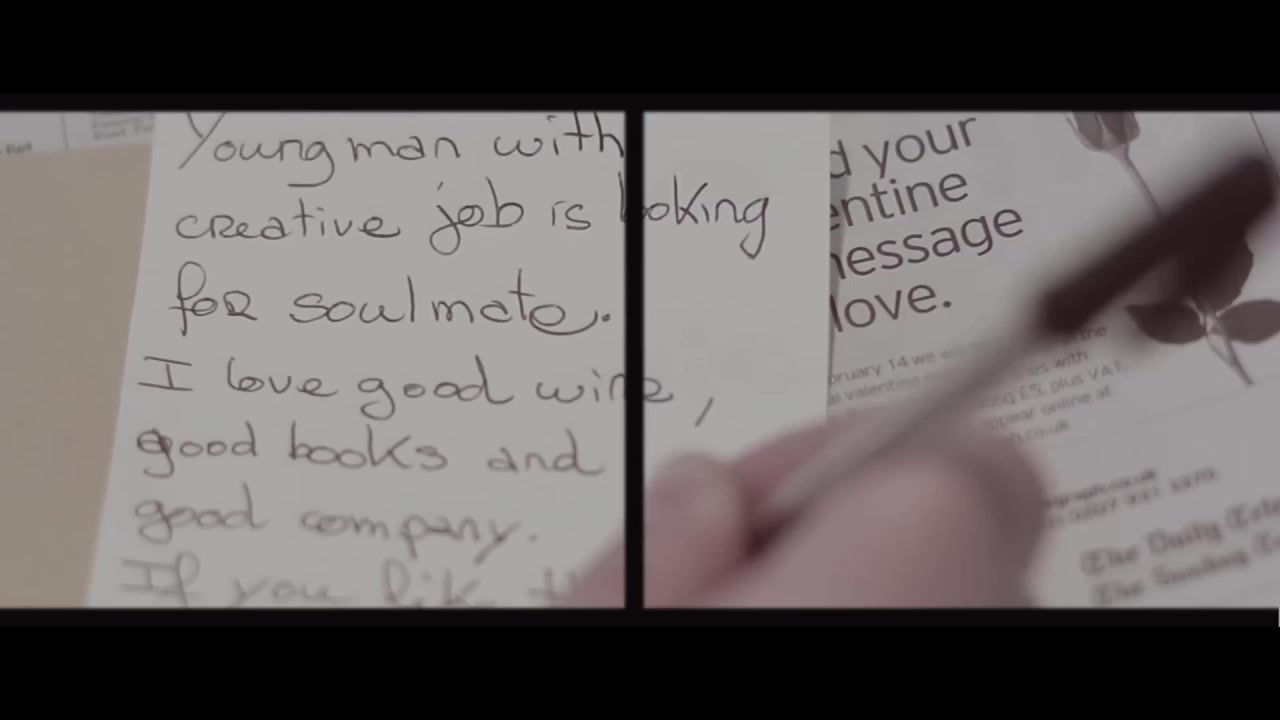 Young man with
creative job is looking
for soulmate.
I love good wine,
good books and
good company.
If you lik
d your
entine
message
love.
bruary 14 we
valentine
es with
ng £5, plus VAT.
appear online at
h.co.uk
graph.co.uk
The Daily Tele
The Sunday Te